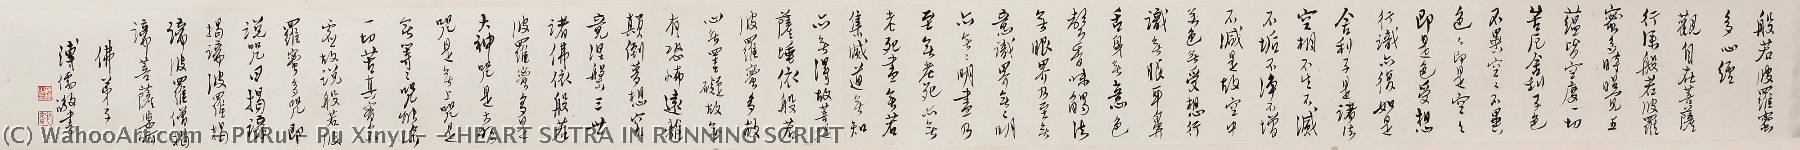 般若波羅蜜
多心經
觀自在菩薩
行深般若波羅
蜜多時照見五
蘊皆空度一切
苦厄舍利子色
不異空々不異
色々即是空々
即是色受想
行識亦復如是
舍利子是諸法
空相不生不滅
不垢不淨不增
不減是故空中
無色無受想行
識無眼耳鼻
舌身無意色
聲香味觸法
無眼界乃至無
意識界無々明
亦無々明盡乃
至無老死亦無
老死盡無苦
集滅道無知
亦無得故菩提
薩埵依般若
波羅蜜多故
心無罣礙故無
有恐怖遠離
顛倒夢想究
竟涅槃三世
諸佛依般若
波羅蜜多
大神咒是大明
咒是無上咒是
無等々咒能除
一切苦真實不
虛故說般若波
羅蜜多咒即
說咒曰揭諦
揭諦波羅揭
諦波羅僧揭
諦菩提薩婆訶
佛弟子
溥儒敬書
(C) WahooArt.com - PuRu - Pu Xinyu - -HEART SUTRA IN RUNNING SCRIPT